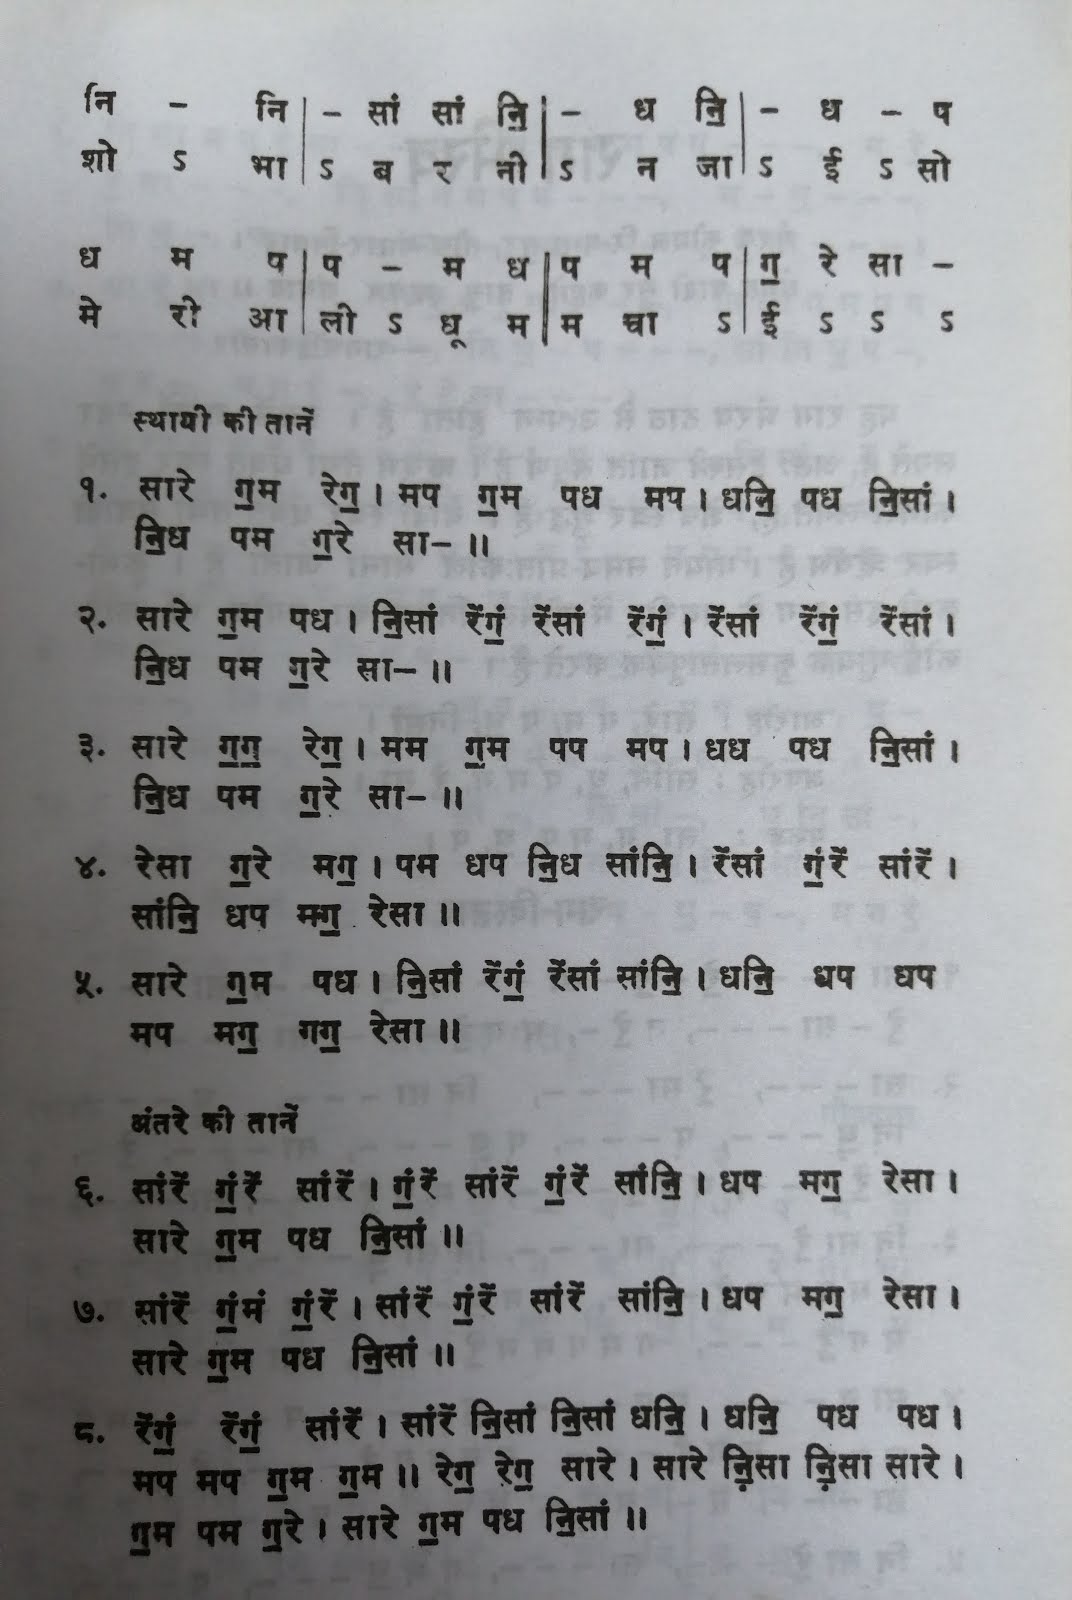 नि – नि | – सां सां नि॒ | – ध नि॒ | – ध – प
शो ऽ भा | ऽ ब र नी | ऽ न जा | ऽ ई ऽ सो
ध म प | प – म ध | प म प | ग॒ रे सा –
मे री आ | ली ऽ धू म | म चा ऽ | ई ऽ ऽ ऽ
स्थायी की तानें
१. सारे ग॒म रेग॒ । मप ग॒म पध मप । धनि॒ पध नि॒सां ।
नि॒ध पम ग॒रे सा– ॥
२. सारे ग॒म पध । नि॒सां रेंगं॒ रेंसां रेंगं॒ । रेंसां रेंगं॒ रेंसां ।
नि॒ध पम ग॒रे सा– ॥
३. सारे ग॒ग॒ रेग॒ । मम ग॒म पप मप । धध पध नि॒सां ।
नि॒ध पम ग॒रे सा– ॥
४. रेसा ग॒रे मग॒ । पम धप नि॒ध सांनि॒ । रेंसां गं॒रें सांरें ।
सांनि॒ धप मग॒ रेसा ॥
५. सारे ग॒म पध । नि॒सां रेंगं॒ रेंसां सांनि॒ । धनि॒ धप धप
मप मग॒ गग॒ रेसा ॥
अंतरे की तानें
६. सांरें गं॒रें सांरें । गं॒रें सांरें गं॒रें सांनि॒ । धप मग॒ रेसा ।
सारे ग॒म पध नि॒सां ॥
७. सांरें गं॒मं गं॒रें । सांरें गं॒रें सांरें सांनि॒ । धप मग॒ रेसा ।
सारे ग॒म पध नि॒सां ॥
८. रेंगं॒ रेंगं॒ सांरें । सांरें नि॒सां नि॒सां धनि॒ । धनि॒ पध पध ।
मप मप ग॒म ग॒म ॥ रेग॒ रेग॒ सारे । सारे नि़॒सा नि़॒सा सारे ।
ग॒म पम ग॒रे । सारे ग॒म पध नि॒सां ॥